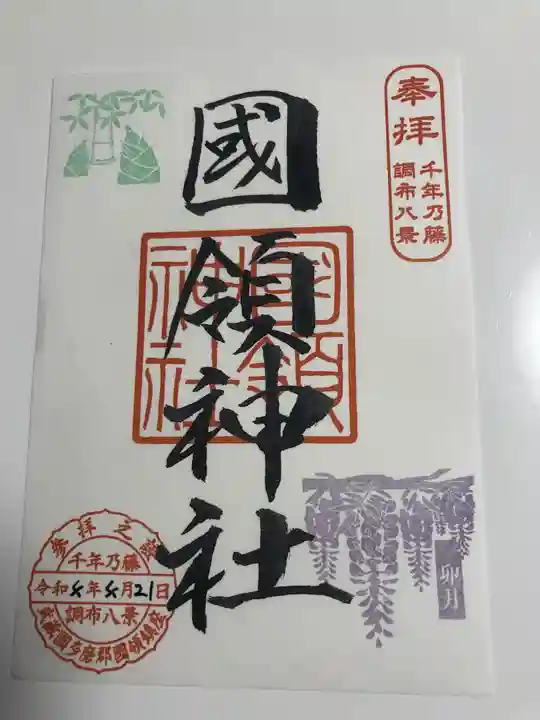 奉拝
千年乃藤
調布八景
國領神社
國領
神社
卯月
参拝之
千年乃藤
令和4年4月21日
調布八景
武蔵國多磨郡國領鎮座